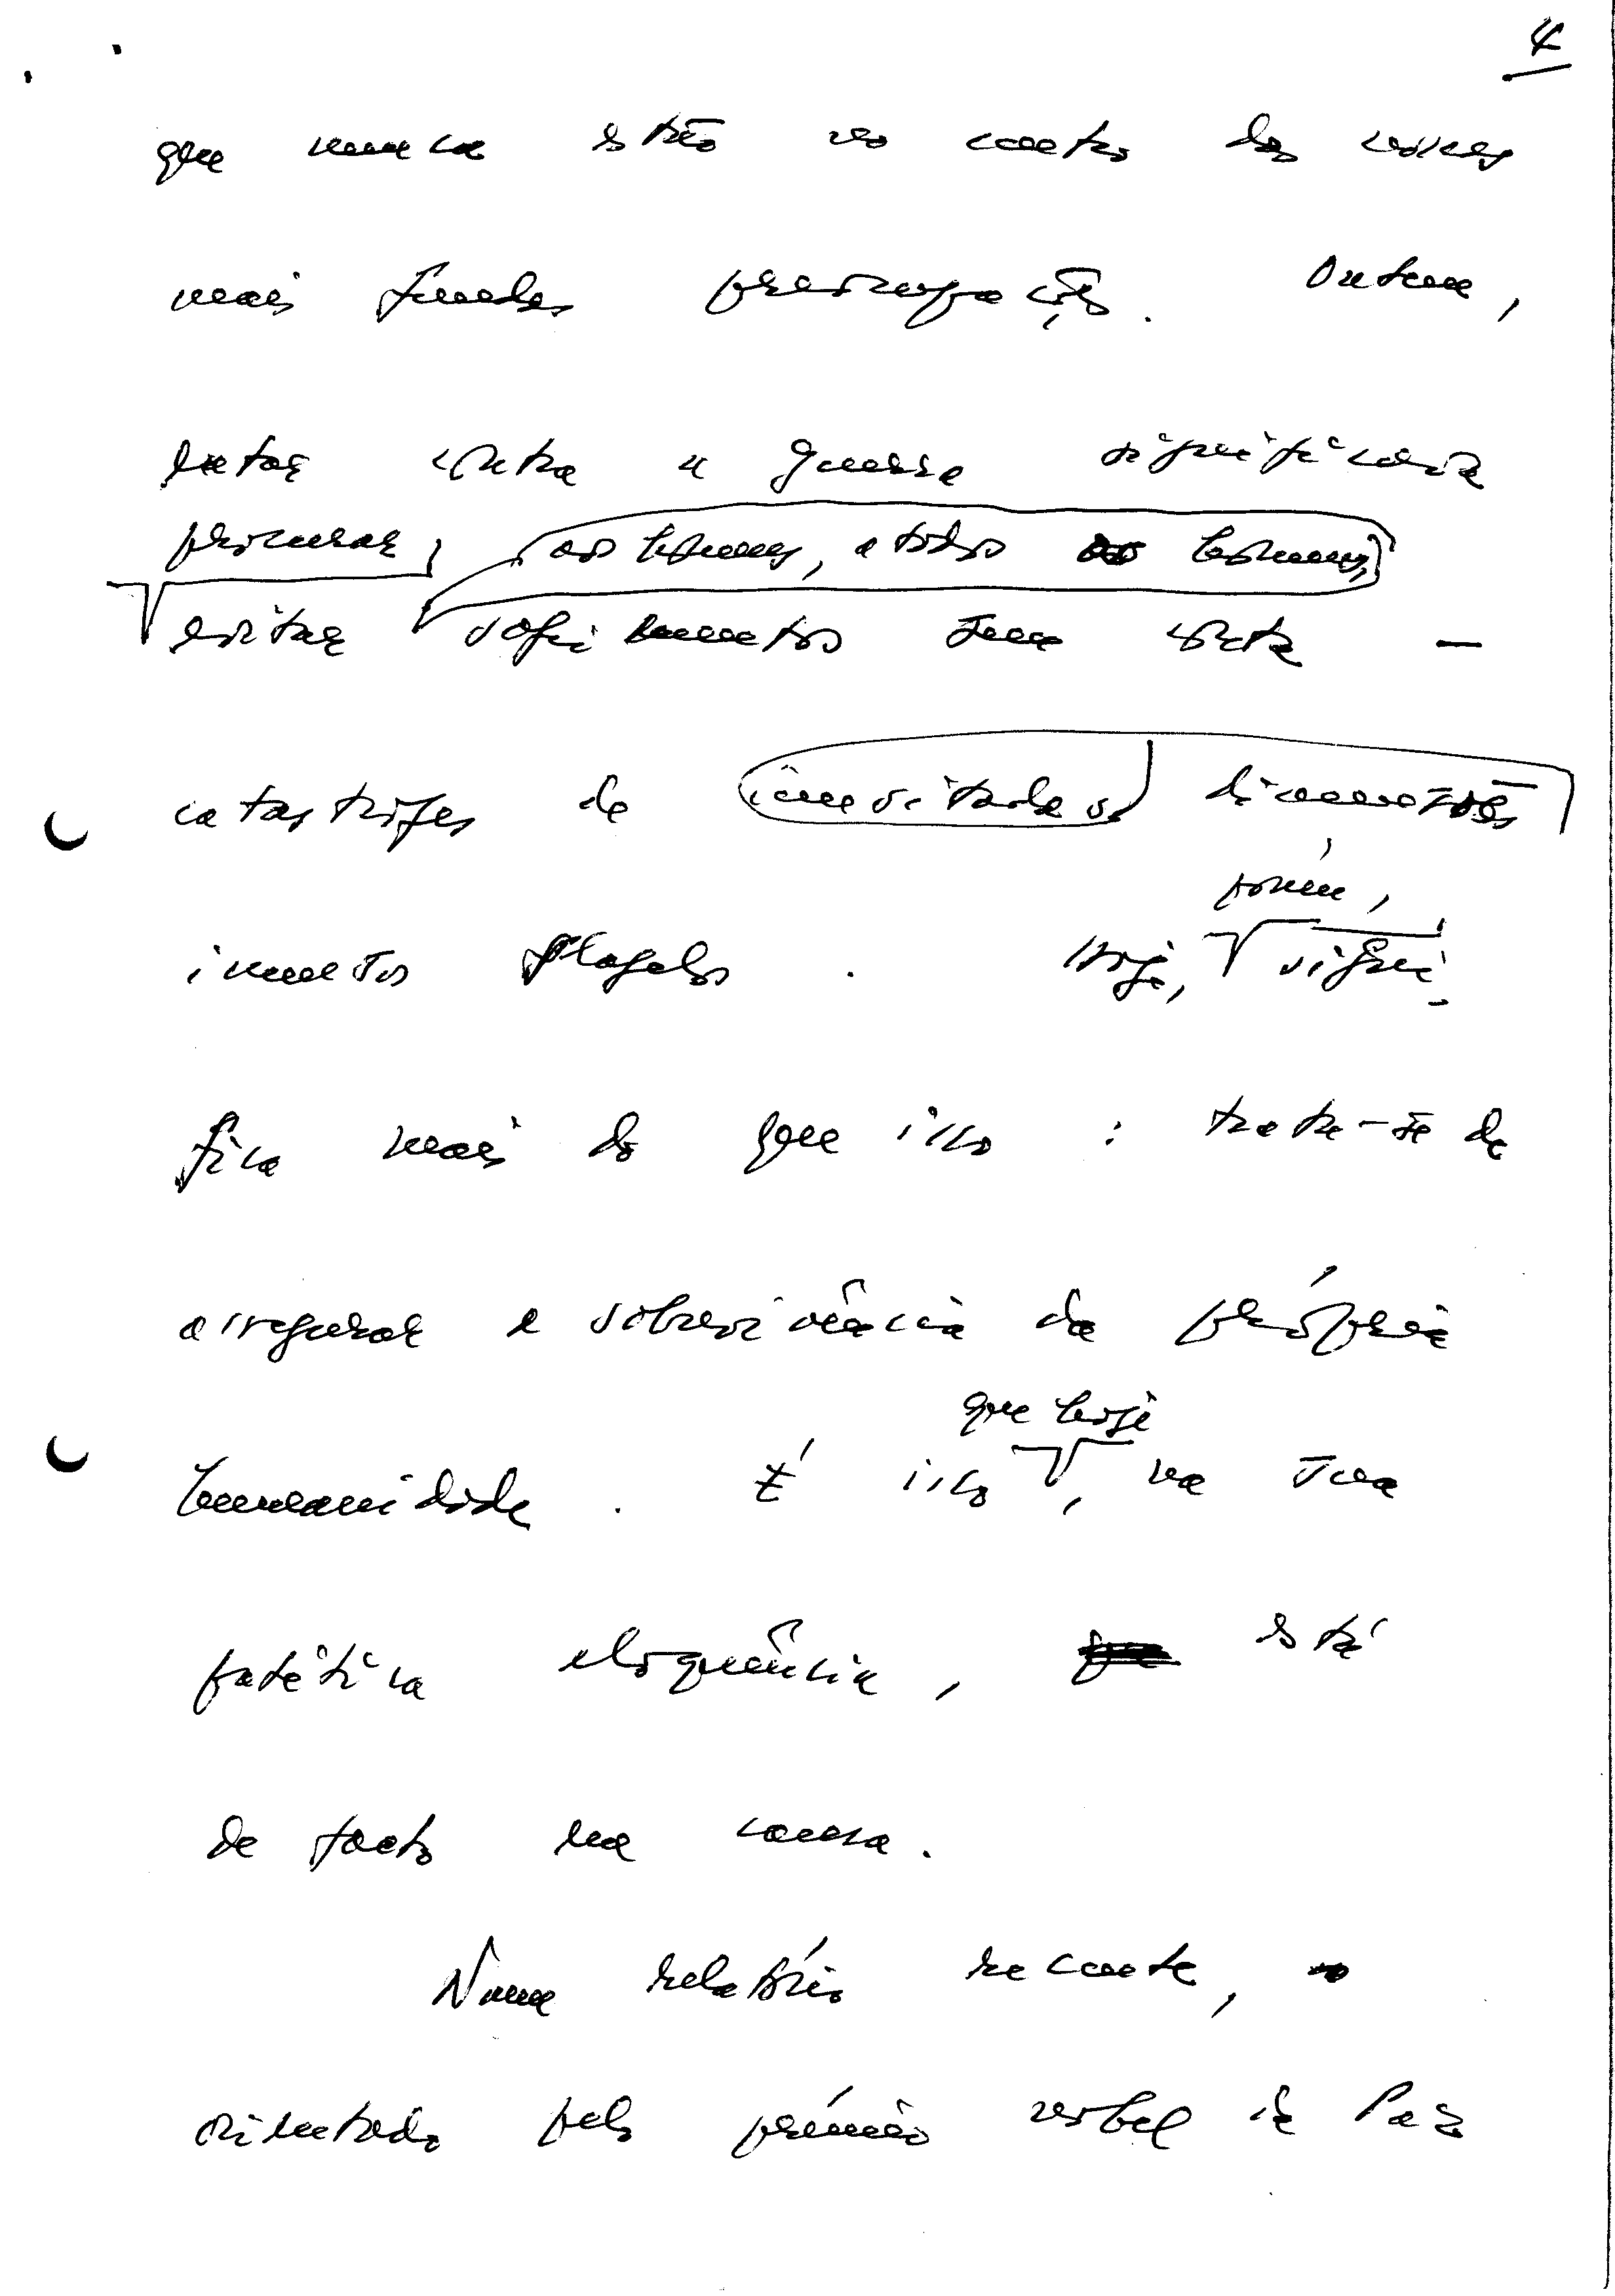 4
que nunca estão no centro das nossas
mais fundas preocupações. Ontem,
lutar contra a guerra significava
procurar aos homens, a todos os homens,
evitar sofrimentos sem conta –
catastrofes de inusitadas dimensões
porém,
imensos flagelos. Hoje, signi-
fica mais do que isso: trata-se de
assegurar a sobrevivência da própria
que hoje
humanidade. É isso, na sua
patética eloquência, está
de facto em causa.
Num relatório recente,
orientado pelo prémio nobel da Paz